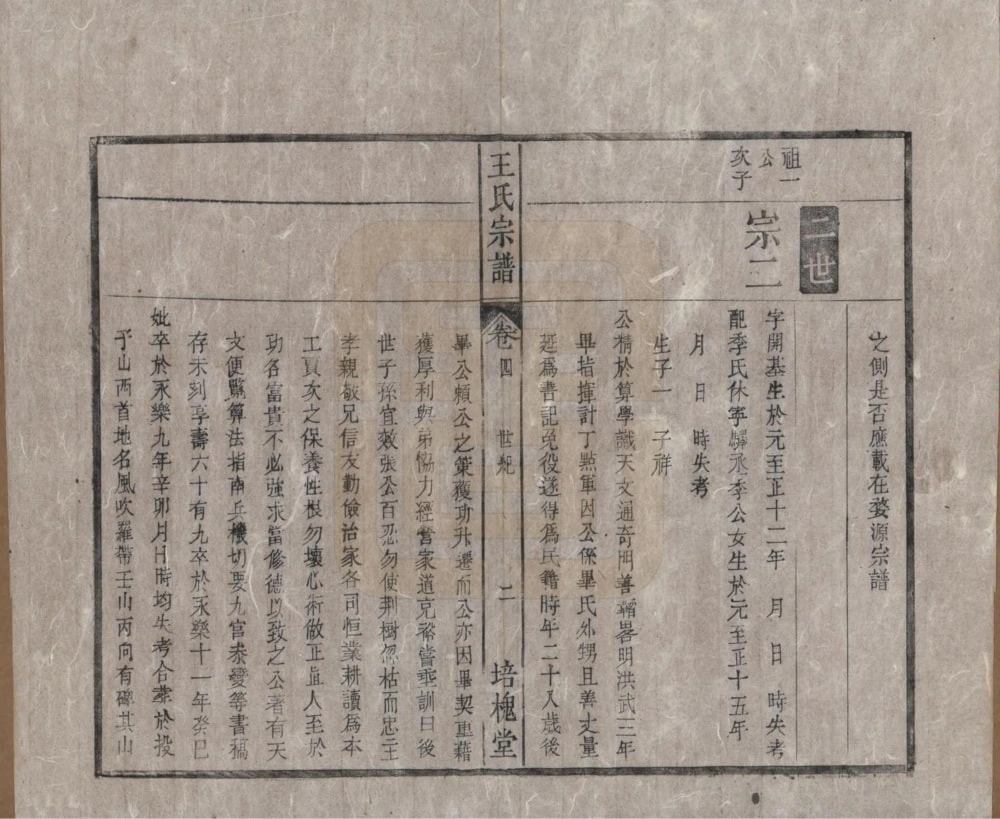 之側是否應載在婺源宗譜
二世
祖一
公
次子
宗二
字開基生於元至正十二年　月　日　時失考
配李氏休寧驛丞李公女生於元至正十五年
月　日　時失考
生子一　子祥
公精於算學識天文通奇門善韜畧明洪武三年
畢指揮計丁點軍因公係畢氏外甥且善丈量
延爲書記免役遂得爲民籍時年二十八歲後
畢公賴公之策獲功升遷而公亦因畢契重藉
獲厚利與弟恊力經營家道克裕嘗垂訓曰後
世子孫宜效張公百忍勿使荆樹偬枯而忠主
孝親敬兄信友勤儉治家各司恒業耕讀爲本
工賈次之保養性根勿壞心術做正直人至於
功名富貴不必強求當修德以致之公著有天
文便覽算法指南兵機切要九宮泰變等書稿
存未刻享壽六十有九卒於永樂十一年癸巳
妣卒於永樂九年辛卯月日時均失考合葬於投
予山西首地名風吹羅帶壬山丙向有碑其山
王氏宗譜
卷四　世紀
二
培槐堂